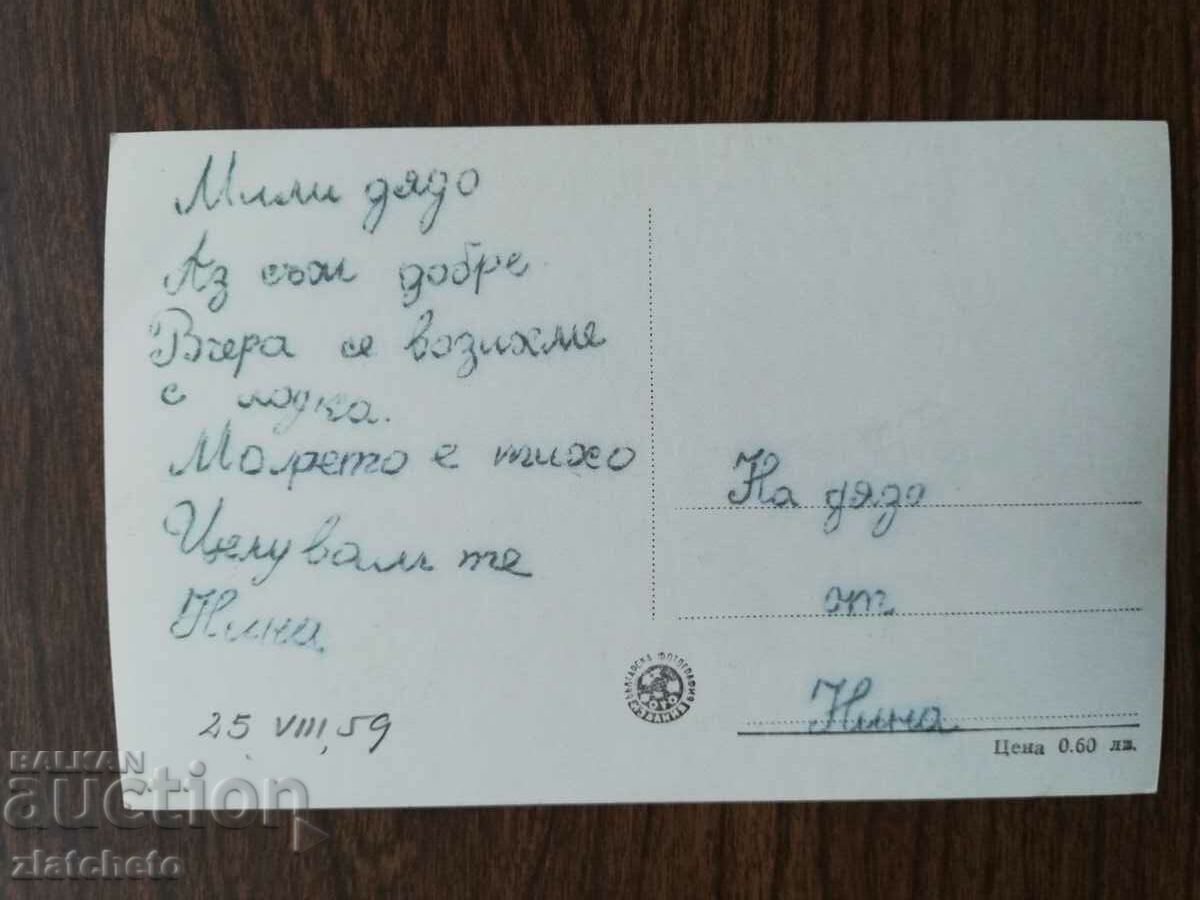 Мили дядо
Аз съм добре
Вчера се возихме
с лодка.
Молрето е тихо
Целувам те
Нина
25 VIII, 59
На дядо
от
Нина
БЪЛГАРСКА ФОТОГРАФИЯ
ИЗДАНИЕ
Цена 0.60 лв.
BALKAN
auction
zlatcheto